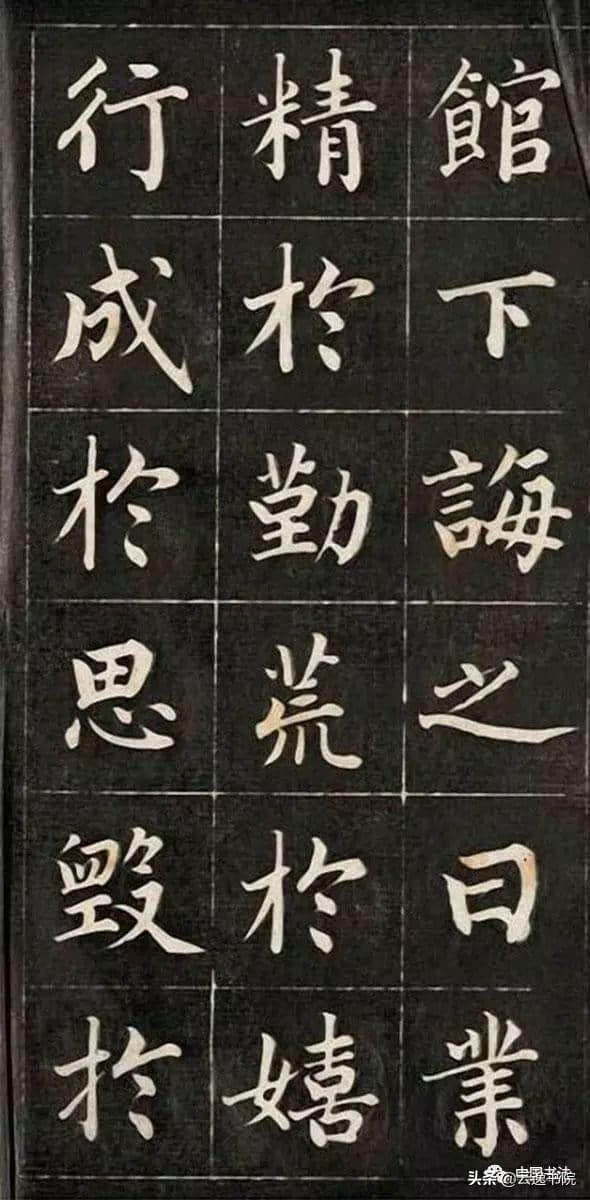 館下誨之曰業
精於勤荒於嬉
行成於思毀於
中国书法
头条@云逸书院